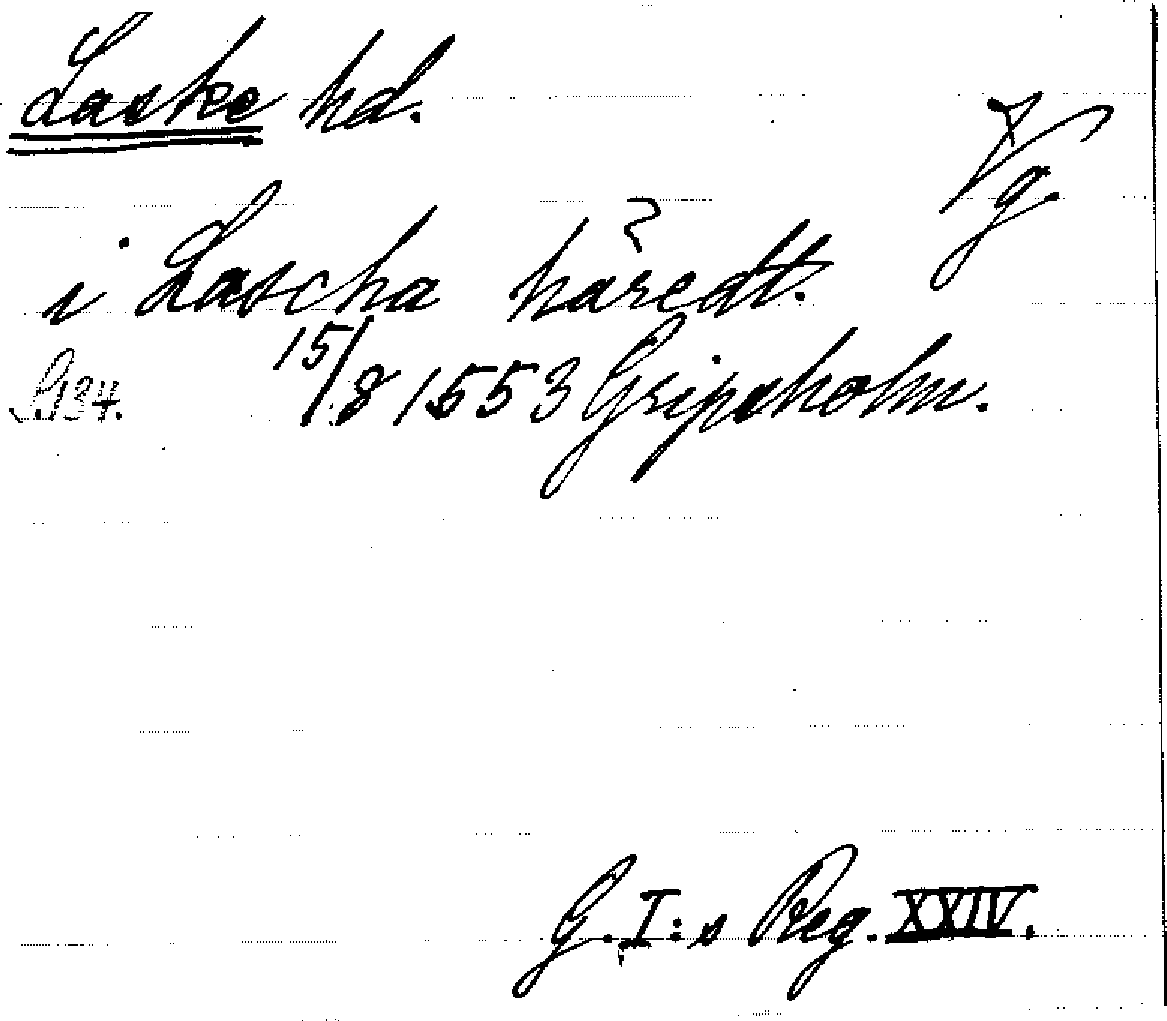 Laske hd.
Vg.
i Lascha häredt.
S. 134. 15/8 1553 Gripsholm.
G. I:s Reg. XXIV.